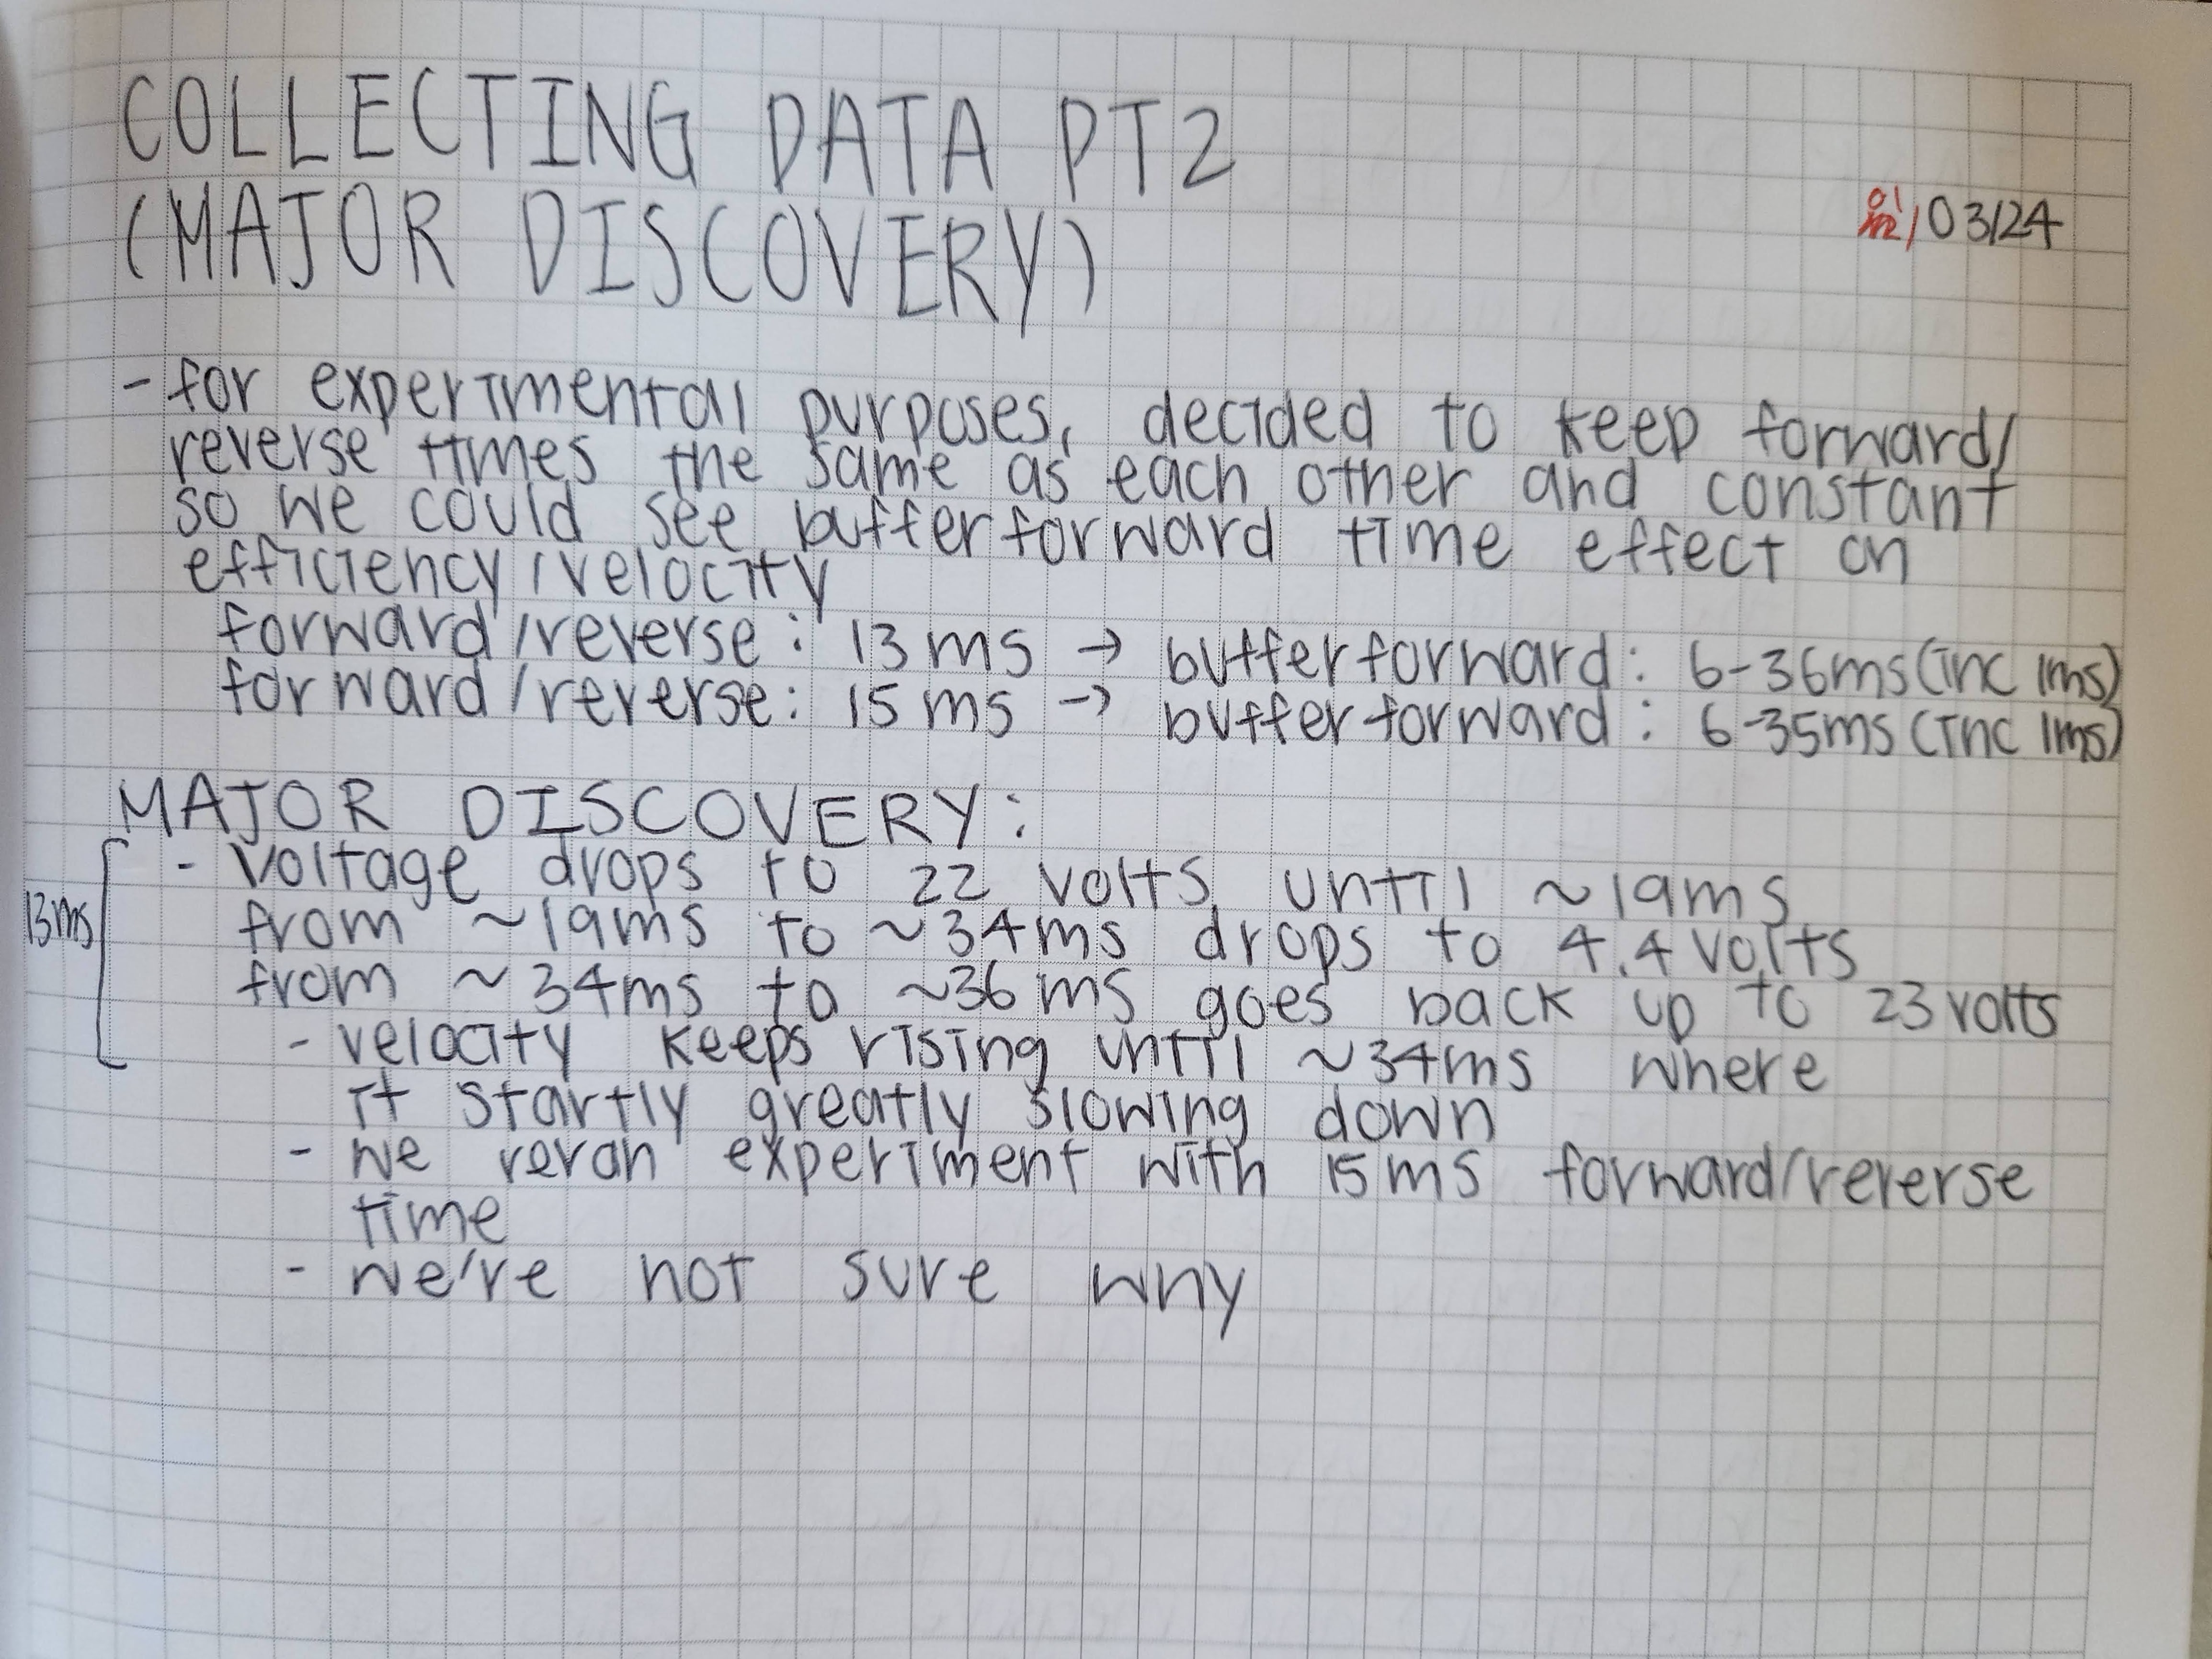 COLLECTING DATA PT2
(MAJOR DISCOVERY)
/03/24
- for experimental purposes, decided to keep forward/
reverse times the same as each other and constant
so we could see bufferforward time effect on
efficiency/velocity
forward/reverse: 13 ms → bufferforward: 6-36ms (inc 1ms)
forward/reverse: 15 ms → bufferforward: 6-35ms (inc 1ms)
MAJOR DISCOVERY:
13ms
- Voltage drops to 22 volts until ~19ms
from ~19ms to ~34ms drops to 4.4 volts
from ~34ms to ~36ms goes back up to 23 volts
- velocity keeps rising until ~34ms where
it startly greatly slowing down
- we reran experiment with 15ms forward/reverse
time
- we're not sure why